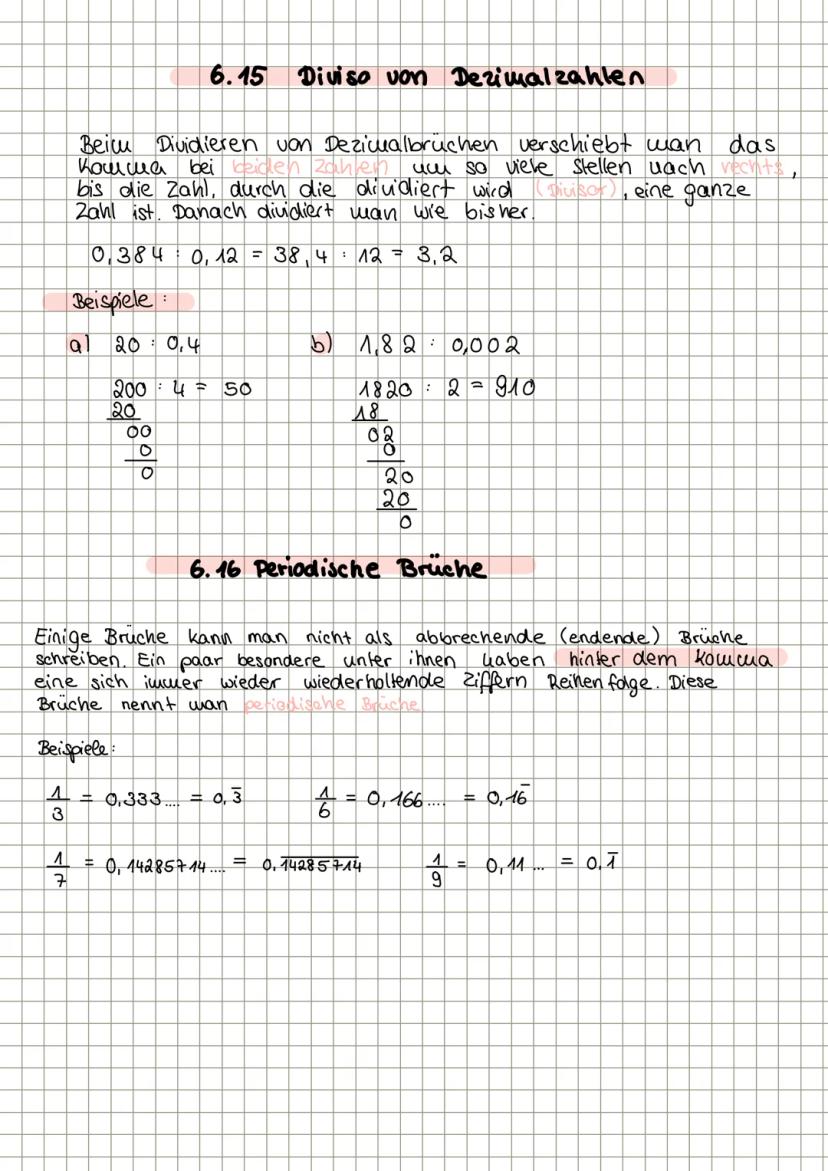 6.15 Diviso von Dezimalzahlen
Beim Dividieren von Dezimalbrüchen verschiebt man das
Komma bei beiden Zahlen um so viele Stellen nach rechts,
bis die Zahl, durch die dividiert wird (Divisor), eine ganze
Zahl ist. Danach dividiert man wie bisher.
0,384 : 0,12 = 38,4 : 12 = 3,2
Beispiele :
a) 20 : 0,4 b) 1,82 : 0,002
200 : 4 = 50 1820 : 2 = 910
20 18
00 02
0 0
0 20
20
0
6.16 Periodische Brüche
Einige Brüche kann man nicht als abbrechende (endende) Brüche
schreiben. Ein paar besondere unter ihnen haben hinter dem Komma
eine sich immer wieder wiederholtende Ziffern Reihenfolge. Diese
Brüche nennt man periodische Brüche
Beispiele:
1/3 = 0,333.... = 0,3̅ 1/6 = 0,166.... = 0,16̅
1/7 = 0,14285714.... = 0.1̅4̅2̅8̅5̅7̅1̅4̅ 1/9 = 0,11... = 0,1̅